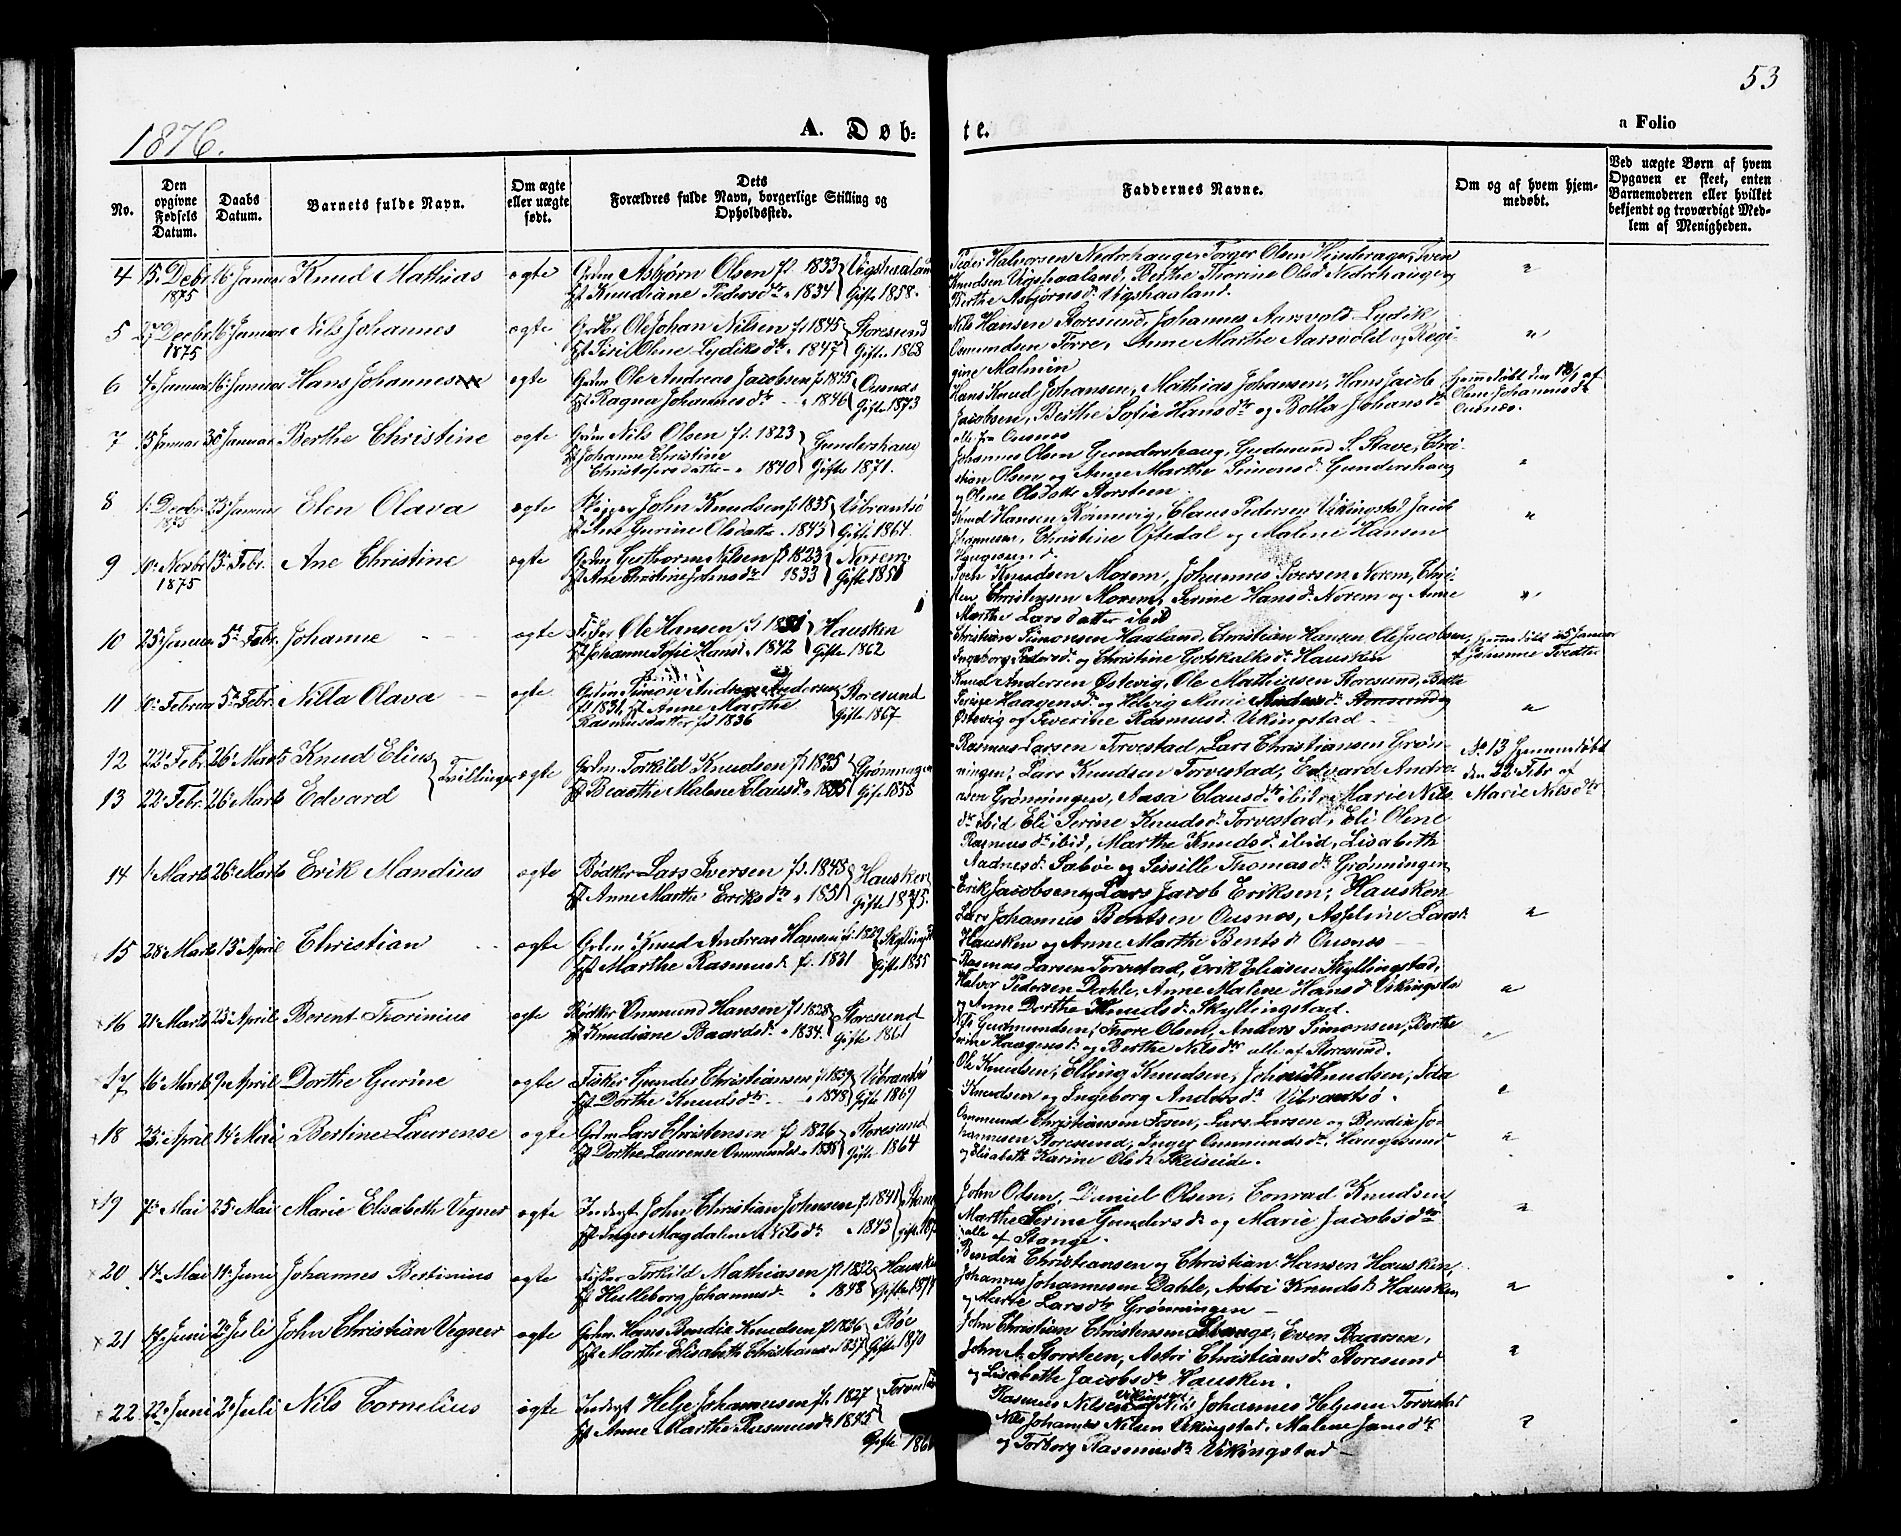 53
1876.
A. Døb-
te.
a Folio
No.
Den opgivne Fødsels Datum.
Daabs Datum.
Barnets fulde Navn.
Om ægte eller uægte født.
Dets Forældres fulde Navn, borgerlige Stilling og Opholdssted.
Faddernes Navne.
Om og af hvem hjemmedøbt.
Ved uægte Børn af hvem Opgaven er skeet, enten Barnemoderen eller hvilket bekjendt og troværdigt Medlem af Menigheden.
4 15. Decbr 1875 16. Januar Knud Mathias ægte
Gdm Asbjørn Olsen f. 1833
Knudiane Pedersdr " 1834 Gift 1858.
Peder Halvorsen Nedrehauge, Torger Olsen
Knudsen Vigshaaland, Berthe Thorine Olsd Nedrehauge og
Berthe Asbjørnsd. Vigshaaland.
5 27 Decbr 1875 16 Januar Nils Johannes ægte
Ole Johan Nilsen f. 1845 Storesund
Siri Olene Lydiksdr " 1847 Gift 1868
Nils Hansen Storesund, Johannes Aarsvold Lydik
Osmundsen Torre, Anne Marthe Aarsvold og Regi-
gine Malmin
6 4 Januar 16 Januar Hans Johannes ægte
Gdm Ole Andreas Jacobsen f. 1845 Ousnes
Ragna Johannesdr " 1846 Gift 1873
Hans Knud Johansen, Mathias Johansen, Hans Jacob
Jacobsen, Berthe Sofie Hansdr og Bolla Johansdr
alle fra Ousnes
Hjemmedøbt den af
Oline Johannesdr
Ousnes.
7 Januar 30 Januar Berthe Christine ægte
Gdm Nils Olsen f. 1823 Gundershaug
Johanne Christine
Christofersdatter " 1840 Gift 1871.
Johannes Olsen Gundershaug, Gudmund S. Stave, Chri-
stian Olsen og Anne Marthe Simonsd. Gundershaug
og Olene Olsdatr Storsteen.
8 1 Decbr 1875 23 Januar Elen Olava ægte
John Knudsen f. 1835 Vibrantsø
Ane Gurine Olsdatter " 1843 Gift 1864.
Knud Hansen Rønnevig, Claus Pedersen Vikingstad, Jacob
Johannesen, Christine Oftedal og Malene Hansen
Haugesund.
9 10 Novbr 1875 13 Febr. Ane Christine ægte
Nilsen f. 1823 Norem
Ane Christine Johnsdr 1833
Sven Knudsen Norem, Johannes Iversen Norem, Chri-
sten Christensen Norem, Serine Hansd. Norem og Anne
Marthe Larsdatter ibid
10 25 Januar 5 Febr. Johanne ægte
Fisker Ole Hansen Hausken
Johanne Sofie Hansd " 1842 Gift 1862
Christian Simonsen Haaland, Christian Hansen Ole Jacobsen,
Ingeborg Pedersd. og Christine Gotskalksd. Hausken
Hjemmedøbt 25 Januar
af Johanne Tvedten
11 Februar 5 Febr. Nilla Olava ægte
Gdm Simon Andreas Andersen Storesund
f. 1831. Anne Marthe
Rasmusdatter f. 1836 Gift 1867
Knud Andersen Østevig, Ole Mathiesen Storesund, Berthe
Serine Haagensd. og Helvig Marie
Østevig og Severine Rasmusd. Vikingstad.
12 22 Febr. 26 Marts Knud Elius
13 22 Febr. 26 Marts Edvard
Tvillinger ægte
Gdm. Torkild Knudsen f. 1835 Grønningen
Beathe Malene Clausd. " 1835 Gift 1858
Rasmus Larsen Torvestad, Lars Christiansen Grøn-
ningen, Lars Knudsen Torvestad, Edvard Andre-
asen Grønningen, Aasa Clausdr ibid, Marie Nils-
dr ibid Eli Serine Knudsd. Torvestad, Eli Olene
Rasmusdr ibid, Marthe Knudsd. ibid, Lisabeth
Aadnesd. Sabøe og Sissille Thomasdr Grønningen
No 13 Hjemmedøbt
den 22 Febr af
Marie Nilsdtr
14 1 Marts 26 Marts Erik Mandius ægte
Bødker Lars Iversen f. 1848 Hausken
Anne Marthe Eriksdr " 1851 Gift 1875.
Erik Jacobsen og Lars Jacob Eriksen, Hausken
Lars Johannes Bentsen Ousnes, Asseline Larsd.
Hausken og Anne Marthe Bentsd. Ousnes
15 28 Marts 13 April Christian ægte
Gdm Knud Andreas Hansen f. 1829
Marthe Rasmusd. f. 1831 Gift 1855
Rasmus Larsen Torvestad, Erik Eliasen Skyllingstad,
Halvor Pedersen Dahle, Anne Malene Hansd. Vikingstad
og Anne Dorthe Knudsd. Skyllingstad.
16 21 Marts 23 April Berent Thorinius ægte
Bødker Ommund Hansen f. 1828 Storesund
Knudiane Baardsd. " 1834. Gift 1861
Gudmundsen, Thore Olsen, Anders Simonsen, Berthe
Serine Haagensd. og Berthe Nilsdr alle af Storesund.
17 16 Marts 9 April Dorthe Gurine ægte
Fisker Gunder Christiansen f. 1839 Vibrantsø
Dorthe Knudsdr " 1848 Gift 1869
Ole Knudsen, Elling Knudsen, Johan Knudsen, Ida
Knudsen og Ingeborg Andersdr Vibrantsø.
18 23 April 14 Mai Bertine Laurense ægte
Gdm Lars Christensen f. 1826 Storesund
Dorthe Laurense Ommundsd. " 1838 Gift 1864
Ommund Christiansen Fosen, Lars Larsen og Bendix Jo-
hannesen Storesund, Inger Ommundsdr, Haugesund
og Elisabeth Karine Olsdr Skeiseide.
19 7 Mai 25 Mai Marie Elisabeth Vegner ægte
Inderst John Christian Johnsen f. 1841 Stange
Inger Magdalene Nilsdr " 1843
John Olsen, Daniel Olsen, Conrad Knudsen,
Marthe Serine Gundersdr og Marie Jacobsdtr
alle af Stange.
20 14 Mai 11 Juni Johannes Bertinius ægte
Fisker Torkild Mathiasen f. 1852 Hausken
Helleborg Johannesdr " 1848 Gift 1874
Bendix Christiansen og Christian Hansen Hausken,
Johannes Johannesen Dahle, Astri Knudsdr Hausken
og Marie Larsdtr Grønningen
21 17 Juni 2 Juli John Christian Vegner ægte
Gdm. Hans Bendix Knudsen f. 1836 Bøe
Marthe Elisabeth Christiansd. " 1837 Gift 1870
John Christian Christensen Stange, Even Baarsen,
John A. Storsteen, Astri Christiansd. Storesund
og Lisabeth Jacobsdr Hausken.
22 22 Juni 2 Juli Nils Cornelius ægte
Inderst Helje Johannesen f. 1827 Torvestad
Anne Marthe Rasmusdr " 1845
Gift
Rasmus Nilsen Vikingstad Nils Johannes Heljesen Torvestad
Nils Johannes Nilsen Vikingstad, Malene Jansdtr
og Torborg Rasmusdr Vikingstad